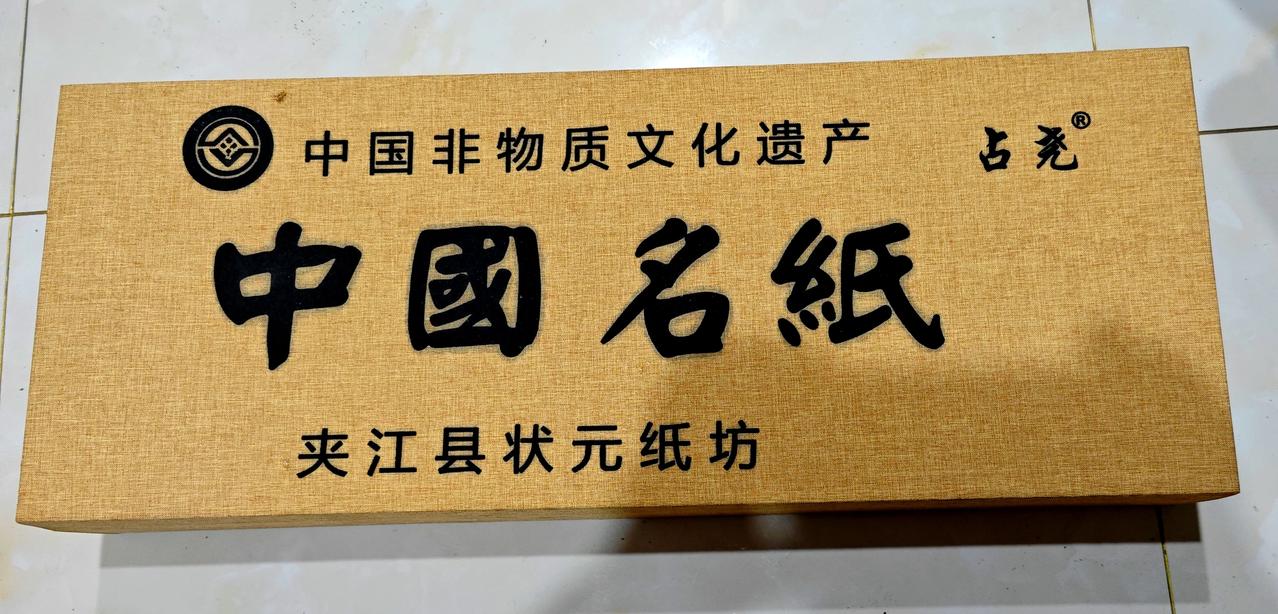 中国非物质文化遗产 占尧®
中國名紙
夹江县状元纸坊